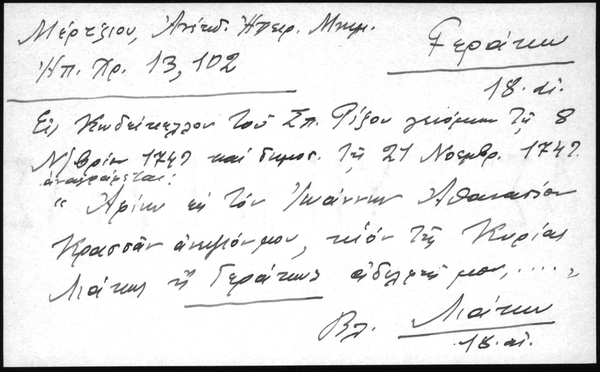 Μέρτζιου, Ανέκδ. Ηπειρ. Μνημ.
Γεράκω
Ηπ. Χρ. 13, 102
18. αι.
Εις Κωδίκελλον του Σπ. Ρίζου γενόμενον τη 8
Ν/βρίου 1747 και δημοσ. τη 21 Νοεμβρ. 1747.
αναγράφεται:
" Αφίνω εις τον Ιωάννην Αθανασίου
Κρασσάν ανεψιόν μου, υιόν της Κυρίας
Λιάκως ή Γεράκως αδελφής μου, .....,
Βλ. Λιάκω
18. αι.